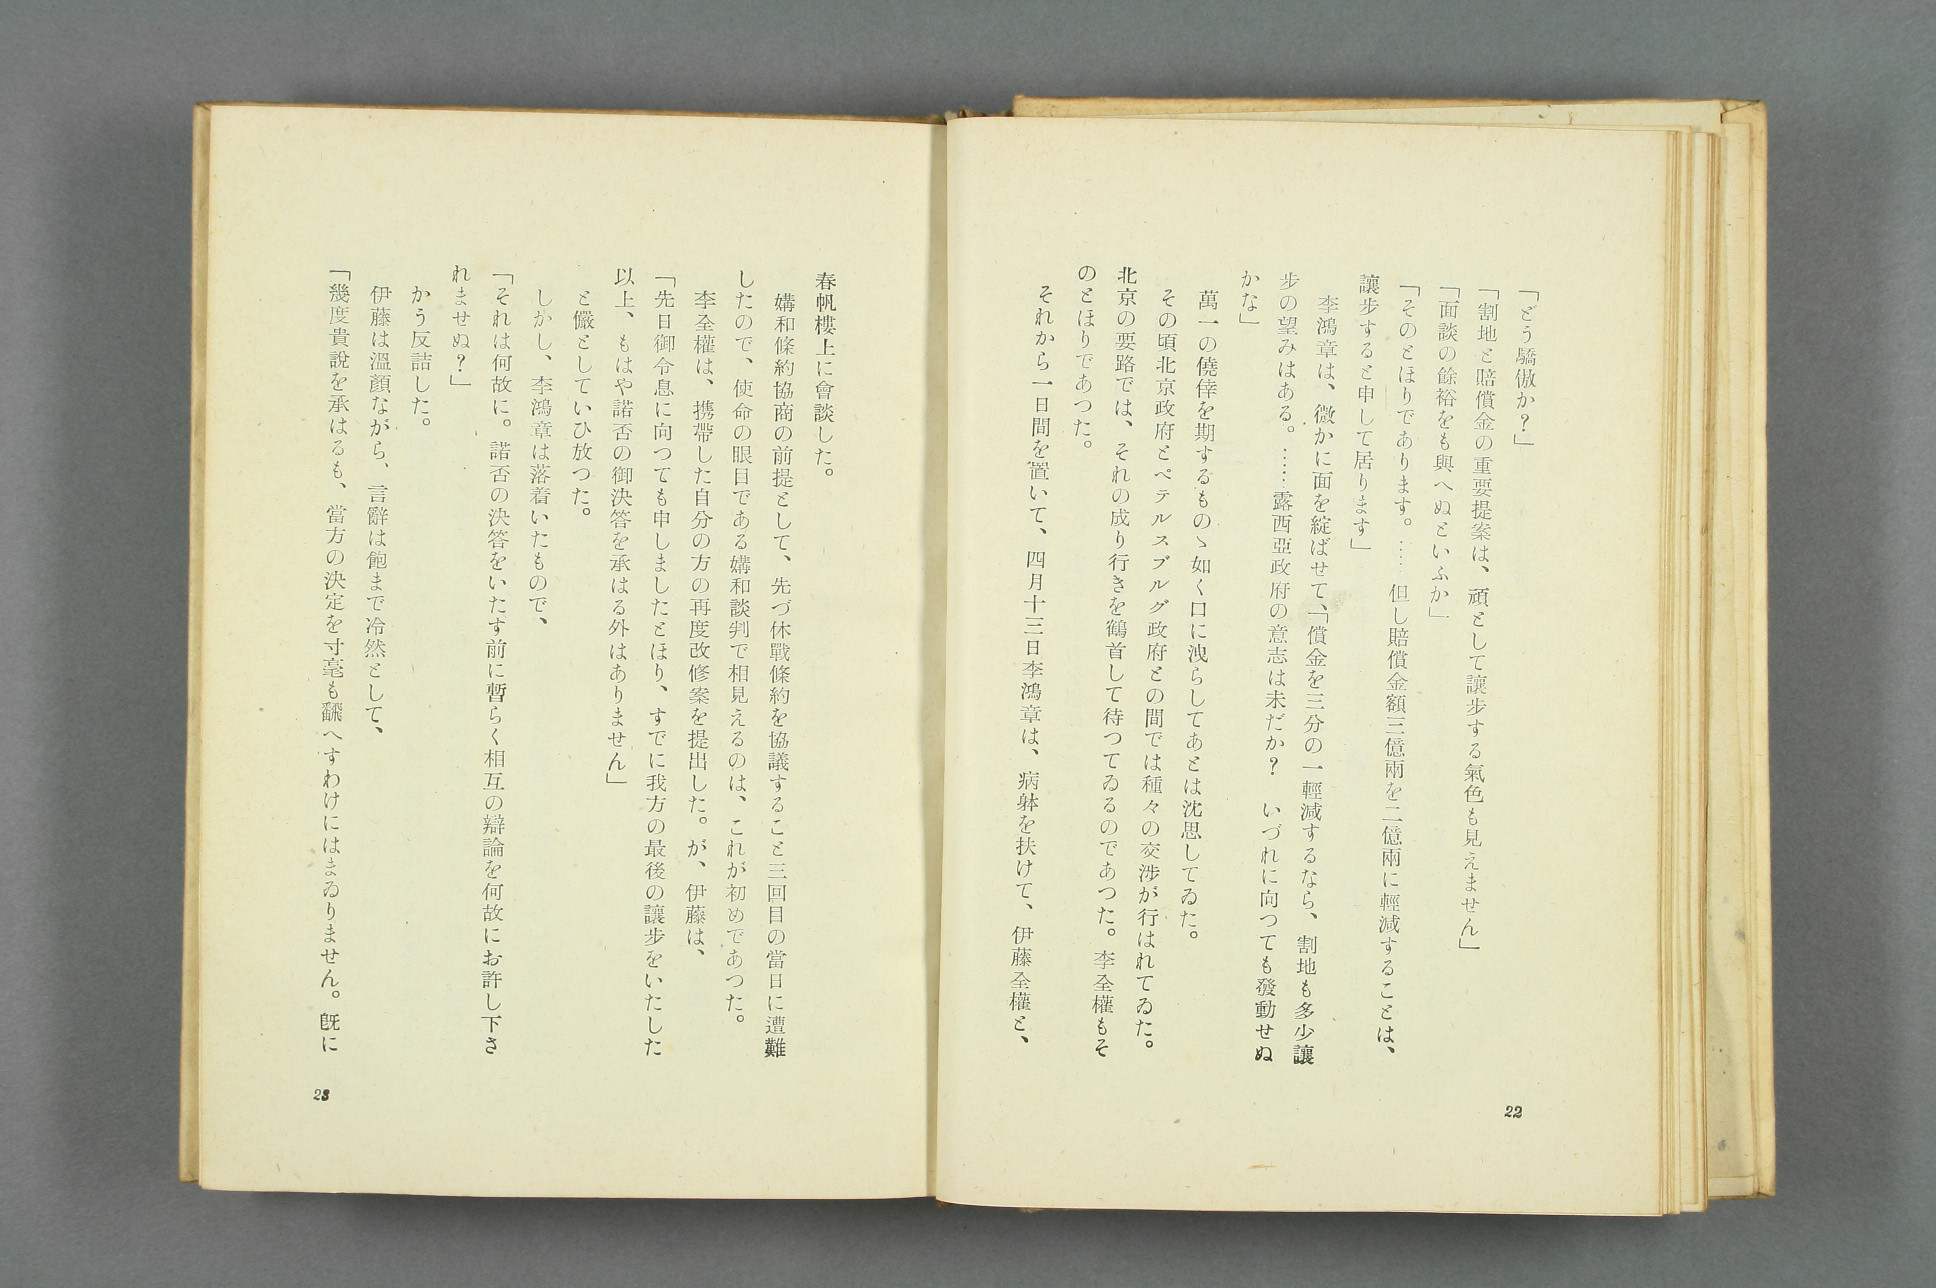 「どう驕傲か？」
「割地と賠償金の重要提案は、頑として讓步する氣色も見えません」
「面談の餘裕をも與へぬといふか」
「そのとほりであります。……但し賠償金額三億兩を二億兩に輕減することは、
讓步すると申して居ります」
李鴻章は、微かに面を綻ばせて、「償金を三分の一輕減するなら、割地も多少讓
步の望みはある。……露西亞政府の意志は未だか？　いづれに向つても發動せぬ
かな」
萬一の僥倖を期するものゝ如く口に洩らしてあとは沈思してゐた。
その頃北京政府とペテルスブルグ政府との間では種々の交渉が行はれてゐた。
北京の要路では、それの成り行きを鶴首して待つてゐるのであつた。李全權もそ
のとほりであつた。
それから一日間を置いて、四月十三日李鴻章は、病躰を扶けて、伊藤全權と、
22
春帆樓上に會談した。
媾和條約協商の前提として、先づ休戰條約を協議すること三回目の當日に遭難
したので、使命の眼目である媾和談判で相見えるのは、これが初めであつた。
李全權は、携帶した自分の方の再度改修案を提出した。が、伊藤は、
「先日御令息に向つても申しましたとほり、すでに我方の最後の讓步をいたした
以上、もはや諾否の御決答を承はる外はありません」
と儼としていひ放つた。
しかし、李鴻章は落着いたもので、
「それは何故に。諾否の決答をいたす前に暫らく相互の辯論を何故にお許し下さ
れませぬ？」
かう反詰した。
伊藤は溫顏ながら、言辭は飽まで冷然として、
「幾度貴說を承はるも、當方の決定を寸毫も飜へすわけにはまゐりません。旣に
23